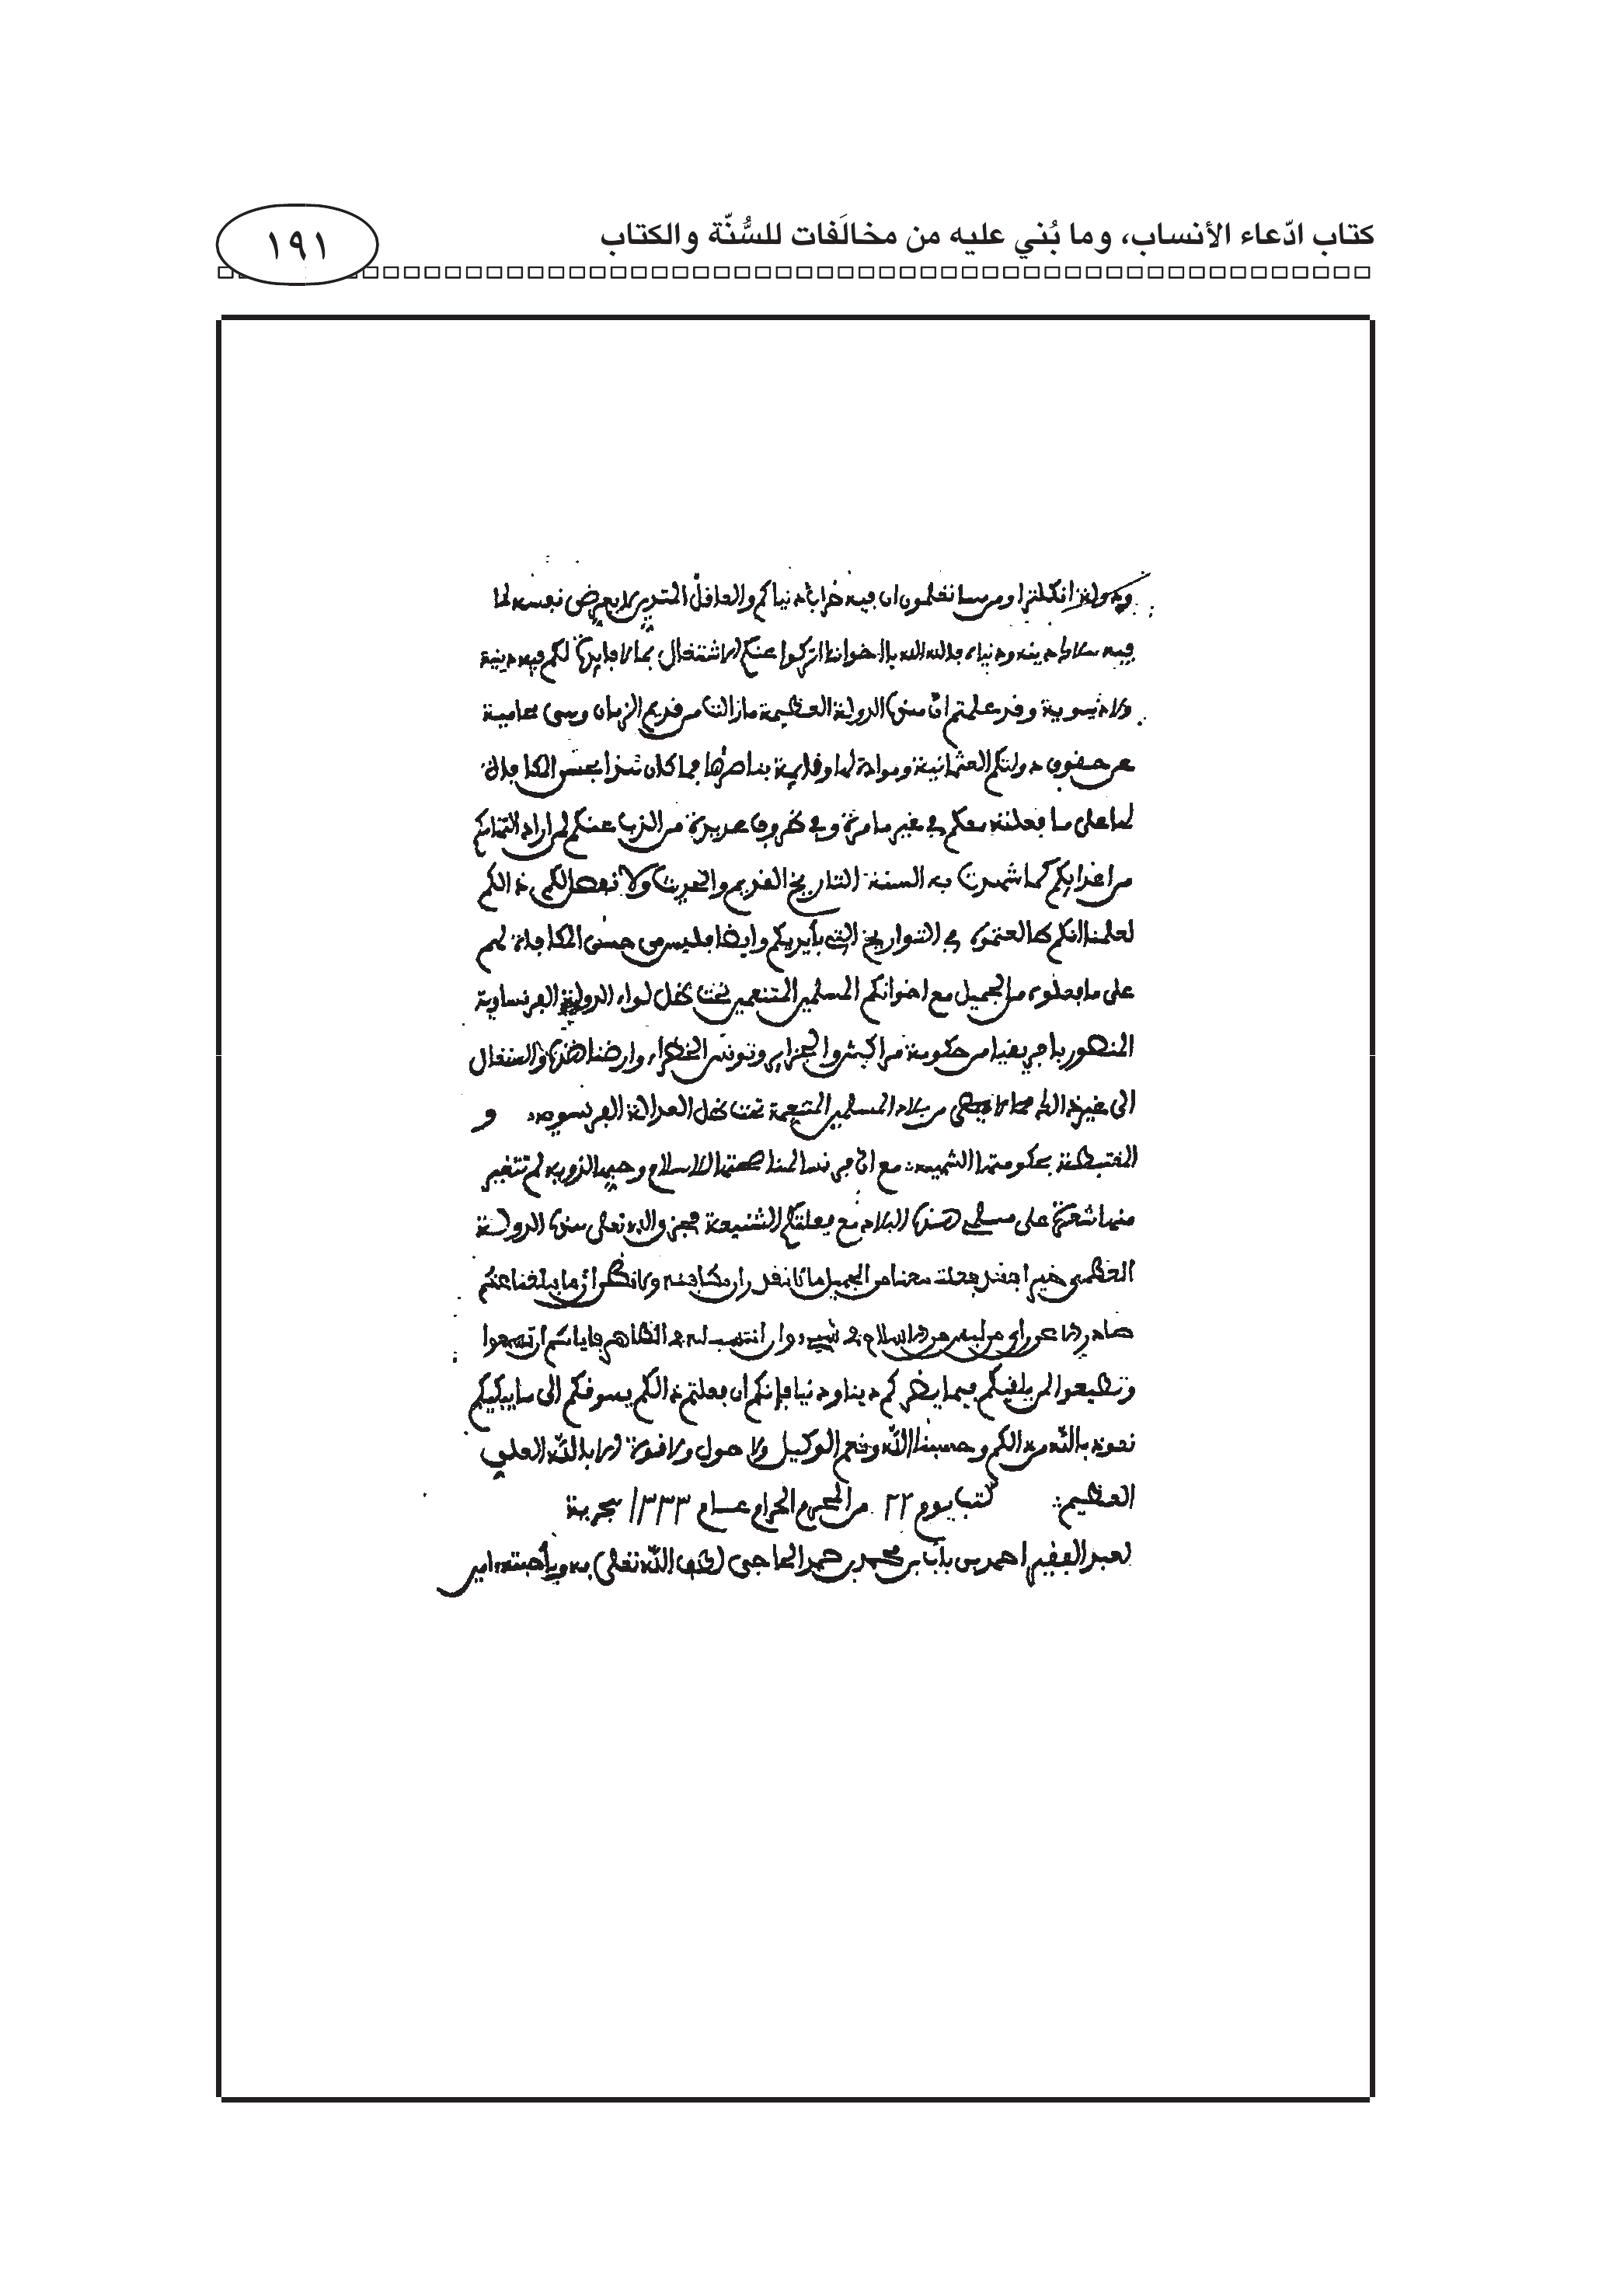 كتاب ادّعاء الأنساب، وما بُني عليه من مخالَفات للسُّنّة والكتاب
١٩١
ودولة انكلترا ومن تعلمون ان فيه خراب دنياكم والعاقل المتدين لا يعرض نفسه لما
فيه دينه ودنياه فالله الله يا اخواننا اتركوا عنكم الاشتغال بما لا فايدة لكم فيه دينية
ولا دنيوية وقد علمتم ان هذه الدولة العظيمة مازالت من قديم الزمان وهي محامية
عن حقوق دولتكم العثمانية وموادة لها وقايمة بناصرها فما كان هذا بحسن المكافاة
لها على ما فعلته معكم في غير ما مرة وفي ظروف عديدة من الذب عنكم لمن اراد التهامكم
من اعدايكم كما شهدت به السنة التاريخ القديم والحديث ولا نفصل لكم ذالكم
لعلمنا انكم طالعتموه في التواريخ التي بأيديكم وايضا فليس من حسن المكافاة لهم
على ما فعلوه من الجميل مع اخوانكم المسلمين المتنعمين تحت ظل لواء الدولة الفرنساوية
المنصور بافريقيا من حكومة مراكش والجزاير وتونس الخضراء وارضنا هذه والسنغال
الى غير ذالك من بلاد المسلمين المتنعمة تحت ظل العدالة الفرنسوية و
المغتبطة بحكومتها الشهيرة مع ان فرنسا لمناصحتها للاسلام وحبها لذويه لم تتغير
منها شعرة على مسلمي هذه البلاد مع فعلتكم الشنيعة فجزى الله تعالى هذه الدولة
العظمى خيرا فقد فعلت معنا من الجميل ما لا نقدر ان نكافئه ولا نظن ان ما يبلغنا عنكم
صادرا عن راي من ليس من الاسلام في شيء وان انتسب له في الظاهر فاياكم ان تسمعوا
وتطيعوا لمن يلقيكم فيما يضركم دينا ودنيا فإنكم ان فعلتم ذالكم يسوقكم الى ما يبكيكم
نعوذ بالله من ذالكم وحسبنا الله ونعم الوكيل ولا حول ولا قوة الا بالله العلي
العظيم كتب يوم ٢٢ من المحرم الحرام عام ١٣٣٣ هجرية
لعبد الفقير احمد بن باب بن محمد بن حمد الحاجي لطف الله تعالى به وبأحبته امين